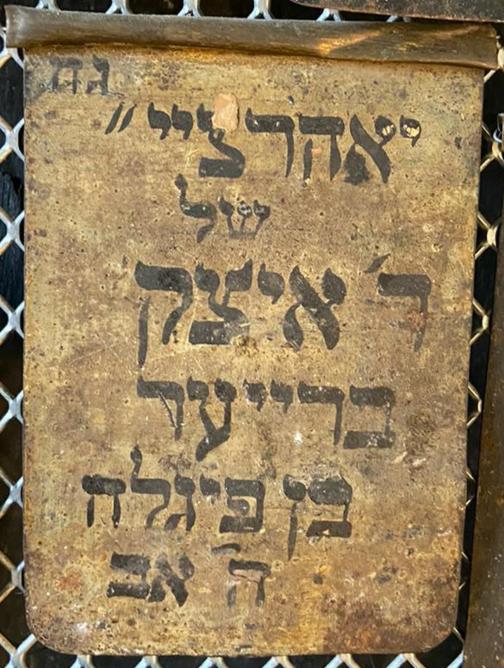 יאהרציי״
של
ר׳ איצק
ברייער
בן פיגלה
ה׳ אב